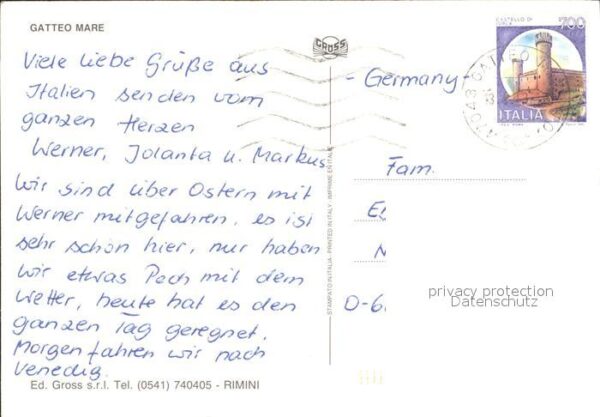 GATTEO MARE
Viele liebe Grüße aus
Italien senden vom
ganzen Herzen
Werner, Jolanta u. Markus
Wir sind über Ostern mit
Werner mitgefahren, es ist
sehr schön hier, nur haben
wir etwas Pech mit dem
Wetter, heute hat es den
ganzen Tag geregnet.
Morgen fahren wir nach
Venedig.
Ed. Gross s.r.l. Tel. (0541) 740405 - RIMINI
GROSS
STAMPATO IN ITALIA - PRINTED IN ITALY - IMPRIME EN ITALIE
CASTELLO DI
700
ITALIA
GATTEO
47043
- Germany -
Fam.
N
D-6
privacy protection
Datenschutz